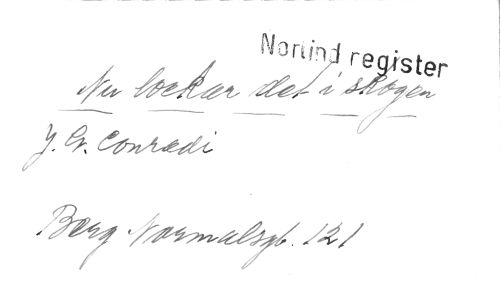 Norlind register
Nu lockar det i skogen
J. G. Conradi
Berg Normalsgb. 121